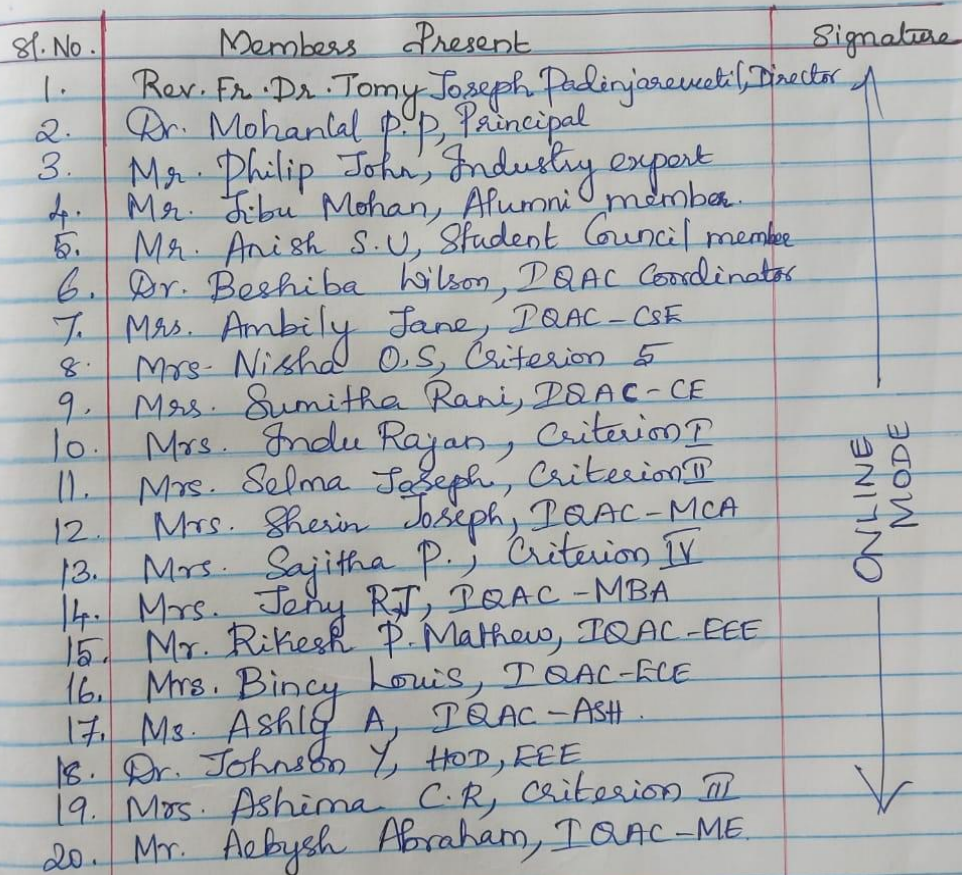 Sl. No. Members Present Signature
1. Rev. Fr. Dr. Tomy Joseph Padinjareveetil, Director
2. Dr. Mohanlal P.P, Principal
3. Mr. Philip John, Industry expert
4. Mr. Jibu Mohan, Alumni member.
5. Mr. Anish S.U, Student Council member
6. Dr. Beshiba Wilson, IQAC Coordinator
7. Mrs. Ambily Jane, IQAC-CSE
8. Mrs. Nisha O.S, Criterion 5
9. Mrs. Sumitha Rani, IQAC-CE
10. Mrs. Indu Rajan, Criterion I
11. Mrs. Selma Joseph, Criterion II
12. Mrs. Sherin Joseph, IQAC-MCA
13. Mrs. Sajitha P., Criterion IV
14. Mrs. Jeny RJ, IQAC-MBA
15. Mr. Rikesh P. Mathew, IQAC-EEE
16. Mrs. Bincy Louis, IQAC-ECE
17. Ms. Ashly A, IQAC-ASH.
18. Dr. Johnson Y, HOD, EEE
19. Mrs. Ashima C.R, Criterion III
20. Mr. Aebysh Abraham, IQAC-ME.
ONLINE
MODE